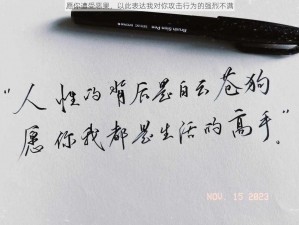 愿你遭受恶果，以此表达我对你攻击行为的强烈不满
Brush Sign Pen
“人性的背后是白云苍狗
愿你我都是生活的高手。”
NOV. 15 2022